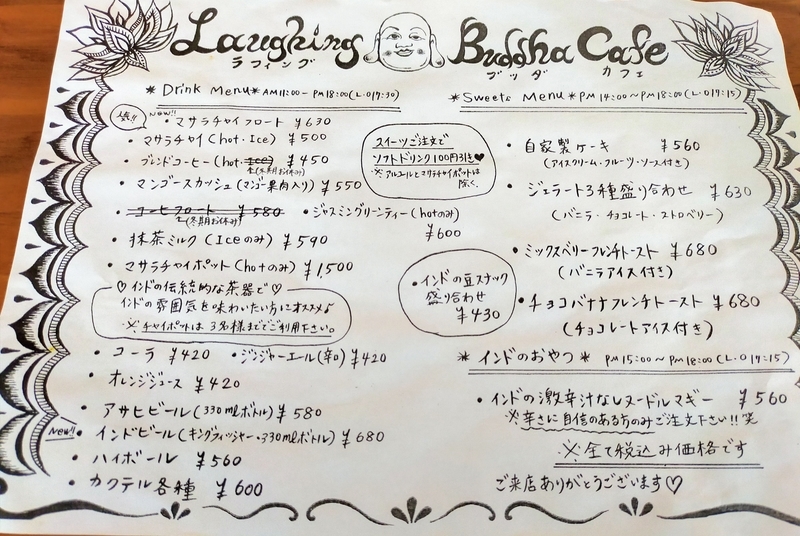 Laughing Buddha Cafe
ラフィング ブッダ カフェ
* Drink Menu * AM11:00-PM18:00(L.O17:30)
NEW!!
・マサラチャイフロート ¥630
・マサラチャイ(hot・Ice) ¥500
・ブレンドコーヒー(hot・Ice) ¥450
(冬期お休み)
・マンゴースカッシュ(マンゴー果肉入り) ¥550
・コーヒーフロート ¥580
(冬期お休み)
・ジャスミングリーンティー(hotのみ)
¥600
・抹茶ミルク(Iceのみ) ¥590
・マサラチャイポット(hotのみ) ¥1500
♡インドの伝統的な茶器で♡
インドの雰囲気を味わいたい方にオススメ♪
※チャイポットは3名様まででご利用下さい。
・コーラ ¥420 ・ジンジャーエール(辛口) ¥420
・オレンジジュース ¥420
・アサヒビール(330mlボトル) ¥580
New!!
・インドビール(キングフィッシャー・330mlボトル) ¥680
・ハイボール ¥560
・カクテル各種 ¥600
スイーツご注文で
ソフトドリンク100円引き♥
※アルコールとマサラチャイポットは
除く。
・インドの豆スナック
盛り合わせ
¥430
* Sweets Menu * PM14:00~PM18:00(L.O17:15)
・自家製ケーキ ¥560
(アイスクリーム・フルーツ・ソース付き)
・ジェラート3種盛り合わせ ¥630
(バニラ・チョコレート・ストロベリー)
・ミックスベリーフレンチトースト ¥680
(バニラアイス付き)
・チョコバナナフレンチトースト ¥680
(チョコレートアイス付き)
* インドのおやつ * PM15:00~PM18:00(L.O17:15)
・インドの激辛汁なしヌードルマギー ¥560
※辛さに自信のある方のみご注文下さい!!笑
※全て税込み価格です
ご来店ありがとうございます♡